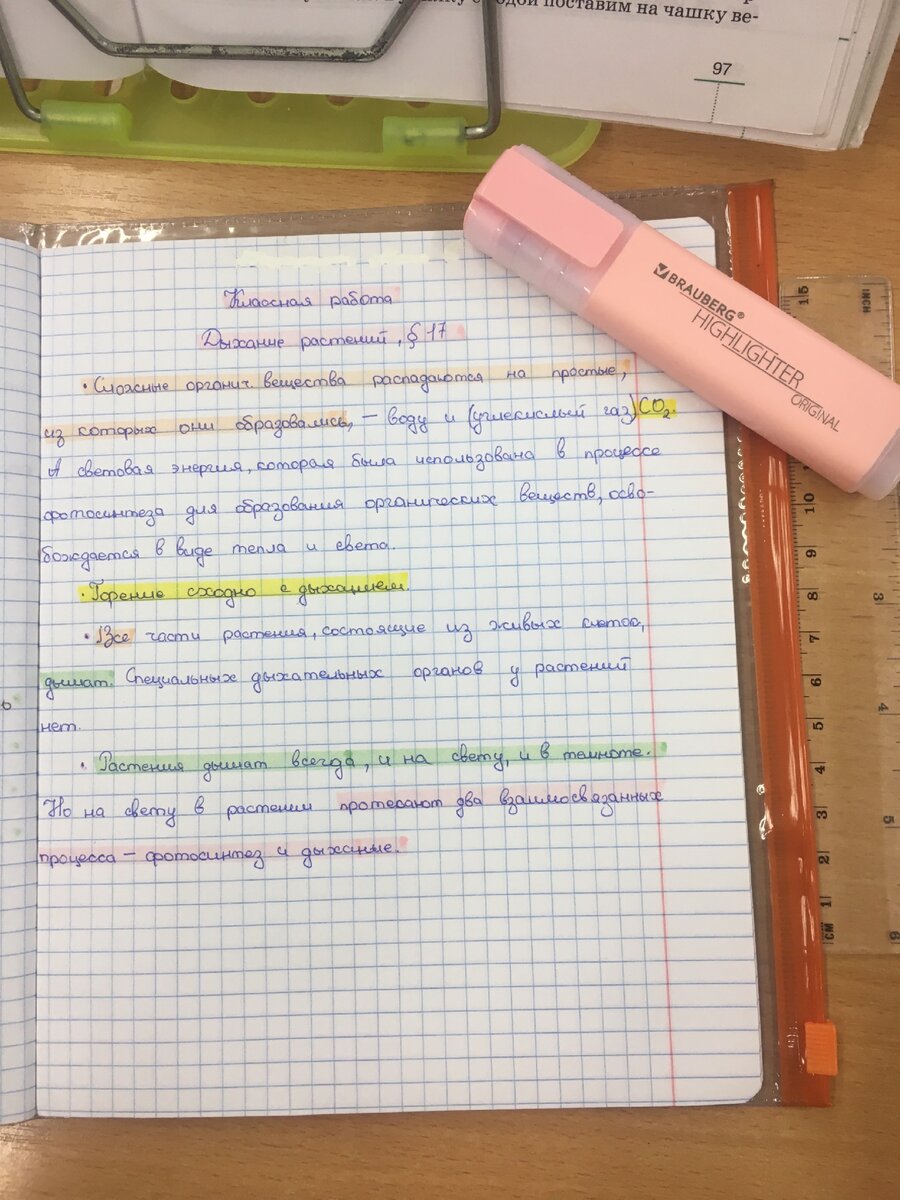 водой поставим на чашку ве-
97
BRAUBERG®
HIGHLIGHTER
ORIGINAL
Классная работа
Дыхание растений, § 17
• Сложные органич. вещества распадаются на простые,
из которых они образовались, – воду и (углекислый газ) CO₂.
А световая энергия, которая была использована в процессе
фотосинтеза для образования органических веществ, осво-
бождается в виде тепла и света.
• Горение сходно с дыханием.
• Все части растения, состоящие из живых клеток,
дышат. Специальных дыхательных органов у растений
нет.
• Растения дышат всегда, и на свету, и в темноте.
Но на свету в растении протекают два взаимосвязанных
процесса – фотосинтез и дыхание.
INCH
15
10
9
8
7
6
5
4
3
2
1
CM
3
4
5
6